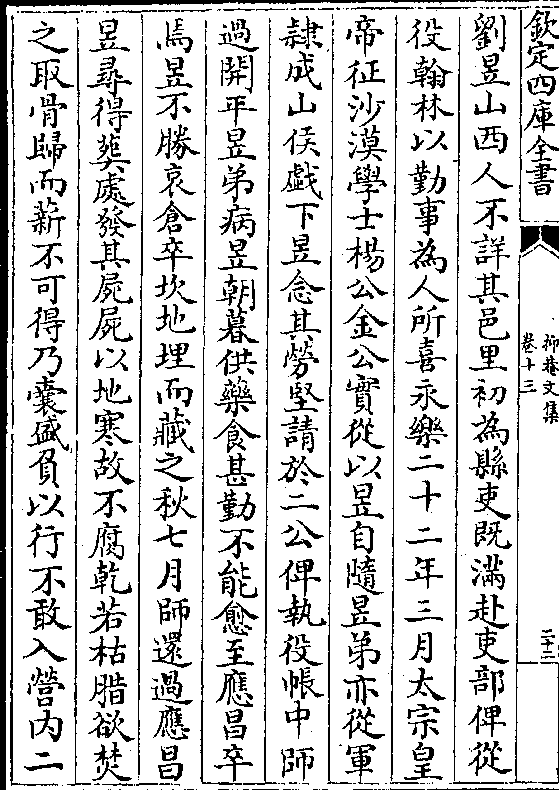 欽定四庫全書
抑菴文集
卷十三
二十三
劉昱山西人不詳其邑里初為縣吏既滿赴吏部俾從
役翰林以勤事為人所喜永樂二十二年三月太宗皇
帝征沙漠學士楊公金公實從以昱自隨昱弟亦從軍
隷成山侯戯下昱念其勞堅請於二公俾執役帳中師
過開平昱弟病昱朝暮供藥食甚勤不能愈至應昌卒
焉昱不勝哀倉卒坎地埋而藏之秋七月師還過應昌
昱尋得葬處發其屍屍以地寒故不腐乾若枯腊欲焚
之取骨歸而薪不可得乃囊盛負以行不敢入營内二